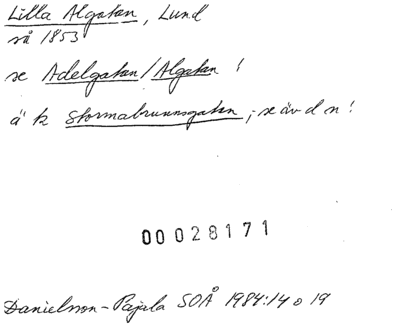 Lilla Algatan, Lund
så 1853
se Adelgatan/Algatan!
ä k Stormabrunnsgatan, se äv d n!
00028171
Danielsson-Pajala SOÅ 1984:14 o 19